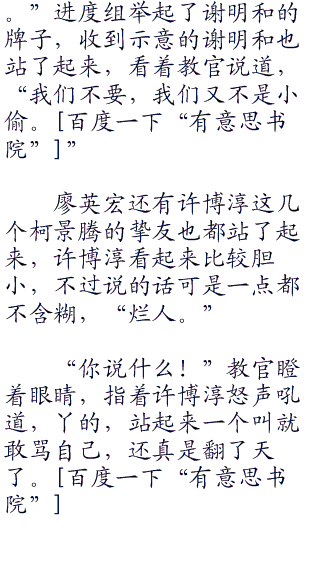 。”进度组举起了谢明和的
牌子，收到示意的谢明和也
站了起来，看着教官说道，
“我们不要，我们又不是小
偷。[百度一下“有意思书
院”]”
廖英宏还有许博淳这几
个柯景腾的挚友也都站了起
来，许博淳看起来比较胆
小，不过说的话可是一点都
不含糊，“烂人。”
“你说什么！”教官瞪
着眼睛，指着许博淳怒声吼
道，丫的，站起来一个叫就
敢骂自己，还真是翻了天
了。[百度一下“有意思书
院”]